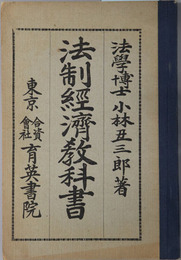 法學博士 小林丑三郎著
法制經濟教科書
東京 合資會社 育英書院